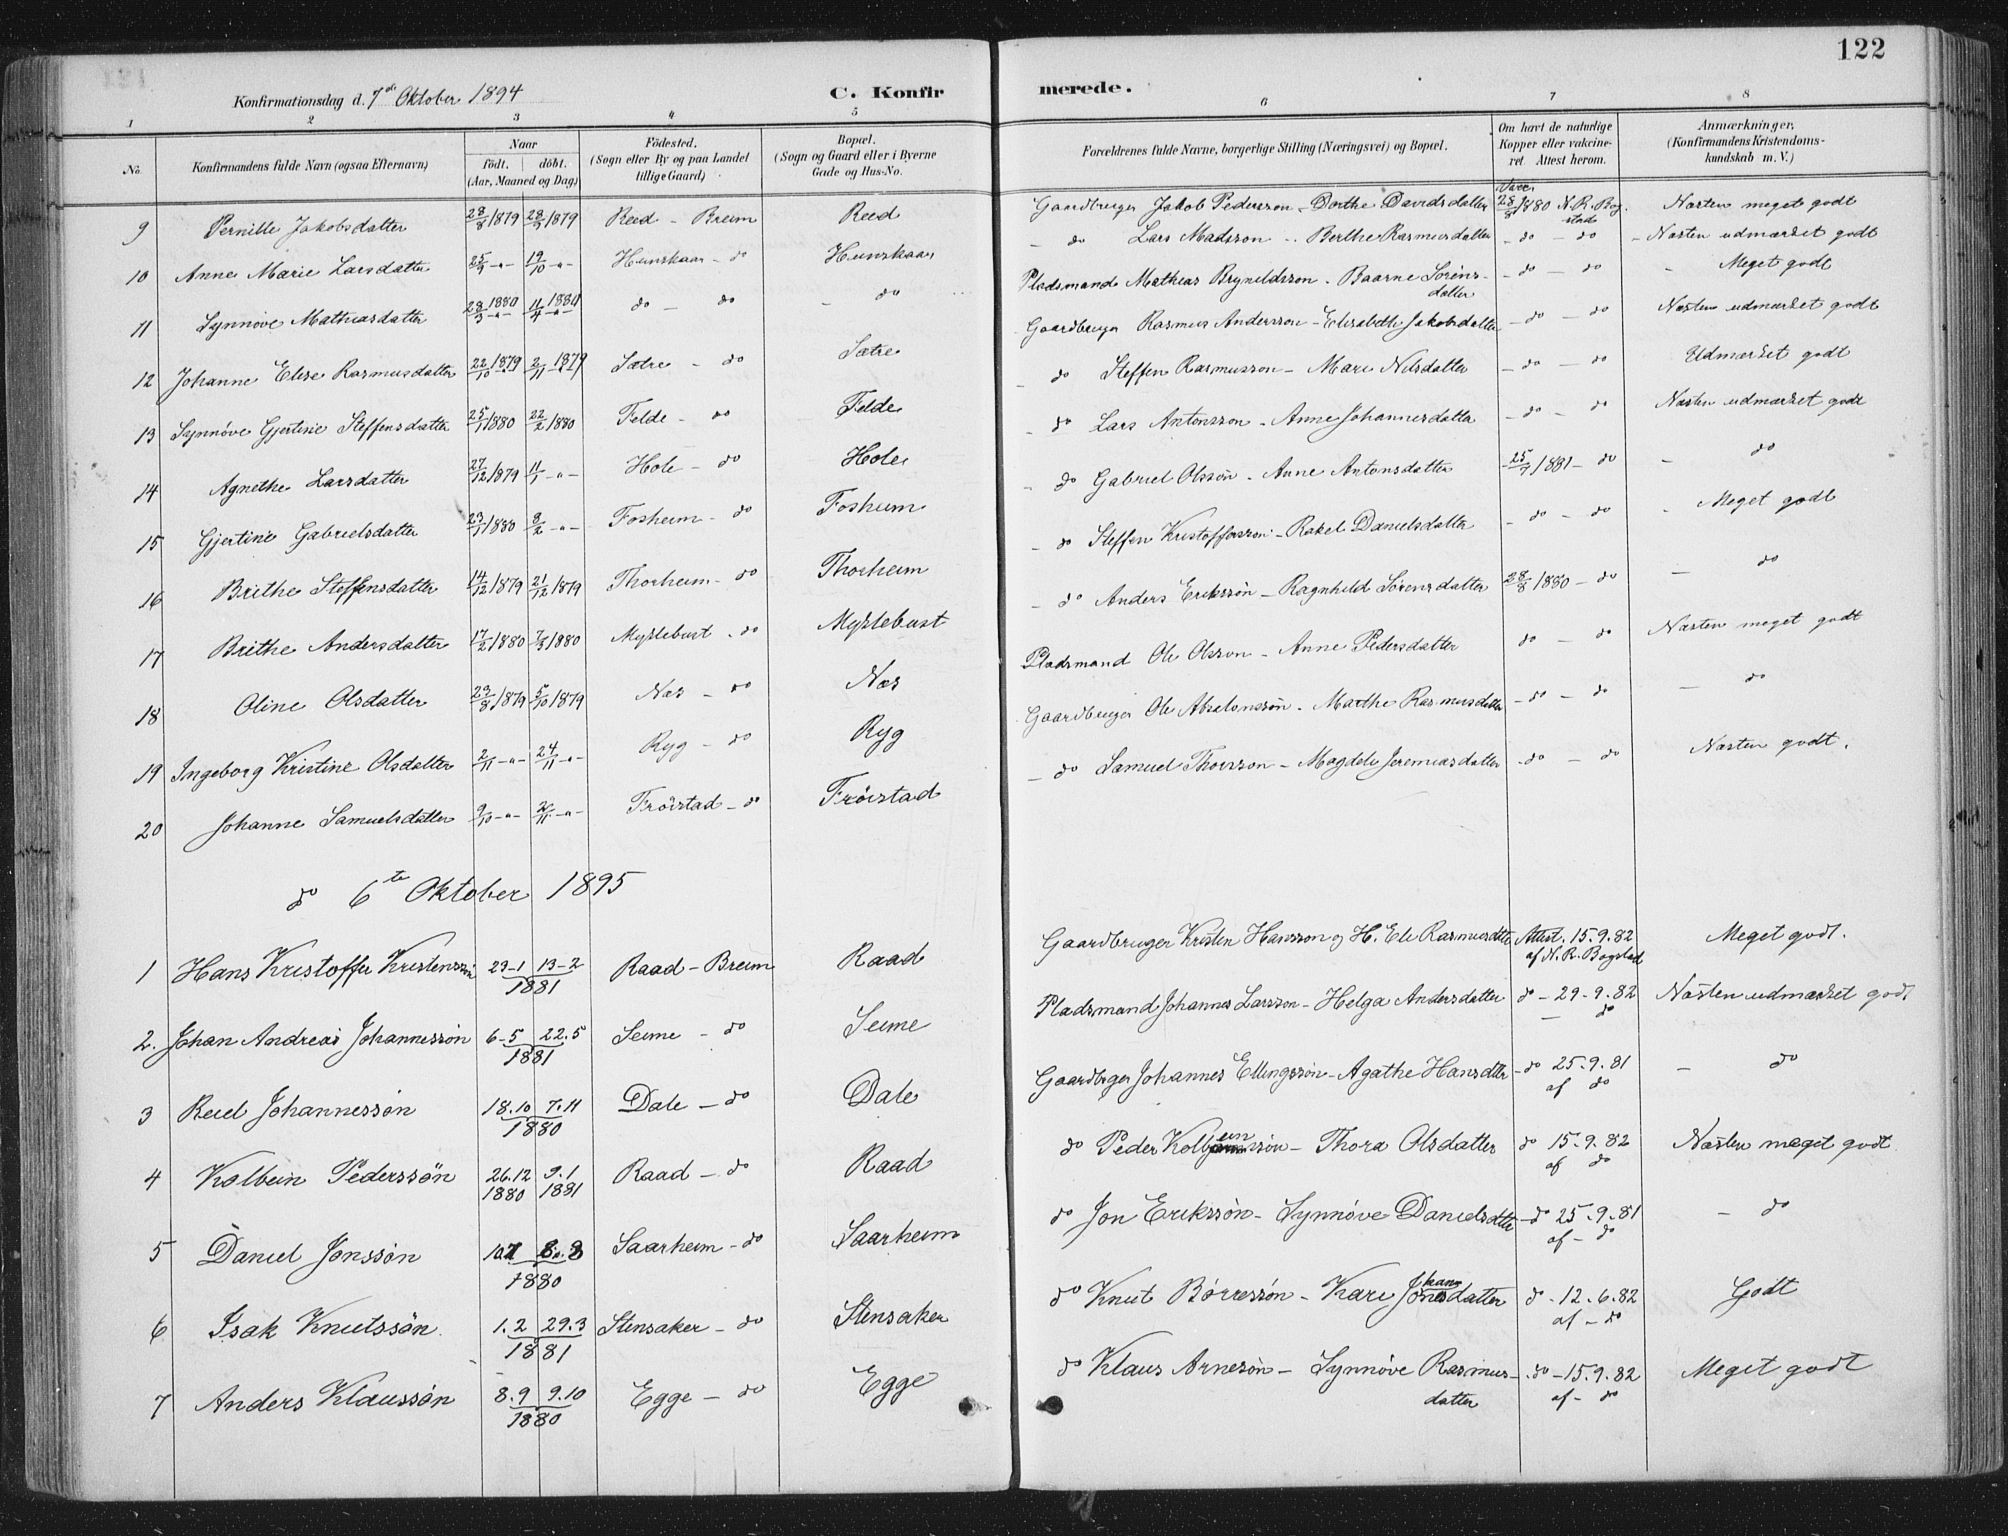 122
Konfirmationsdag d. 7de Oktober 1894 C. Konfirmerede.
1 2 3 4 5 6 7 8
No. Konfirmandens fulde Navn (ogsaa Efternavn) Naar født. døbt. (Aar, Maaned og Dag) Födested. (Sogn eller By og paa Landet tillige Gaard) Bopæl. (Sogn og Gaard eller i Byerne Gade og Hus-No. Forældrenes fulde Navne, borgerlige Stilling (Næringsvei) og Bopæl. Om havt de naturlige Kopper eller vakcineret. Attest herom. Anmærkninger. (Konfirmandens Kristendomskundskab m. V.)
9 Pernille Jakobsdatter 28/8 1879 28/9 1879 Reed - Breim Reed Gaardbruger Jakob Pederssøn - Dorthe Davidsdatter Vacc. 28/8 1880 N. R. Bogstad Næsten meget godt
10 Anne Marie Larsdatter 25/9 -"- 19/10 -"- Hunskaar - do Hunskaar - do Lars Madsson - Berthe Rasmusdatter - do - do - Næsten udmærket godt
11 Synnøve Mathiasdatter 28/3 1880 -"- 11/4 1880 -"- do - do - do Pladsmand Mathias Bryneldsson - Baarne Sørensdatter - do - do - Meget godt
12 Johanne Elise Rasmusdatter 22/10 1879 2/11 1879 Sætre - do Sætre Gaardbruger Rasmus Andersson - Elisabeth Jakobsdatter - do - do Næsten udmærket godt
13 Synnøve Gjertine Steffensdatter 25/1 1880 22/2 1880 Felde - do Felde - do Steffen Rasmusson - Mari Nilsdatter - do - do Udmærket godt
14 Agnethe Larsdatter 27/12 1879 11/1 -"- Hole - do Hole - do Lars Antonsson - Anne Johannesdatter - do - do Næsten udmærket godt
15 Gjertine Gabrielsdatter 23/1 1880 8/2 -"- Fosheim - do Fosheim - do Gabriel Olssøn - Anne Antonsdatter - 25/9 1881 - do - do
16 Brithe Steffensdatter 14/12 1879 21/12 1879 Thorheim - do Thorheim - do Steffen Kristofferssøn - Rakel Danielsdatter - do - do - Meget godt
17 Brithe Andersdatter 17/2 1880 7/3 1880 Myklebust - do Myklebust - do Anders Erikssøn - Ragnhild Sørensdatter 28/8 1880 - do - do
18 Oline Olsdatter 23/8 1879 5/10 1879 Nes - do Nes Pladsmand Ole Olsson - Anne Pedersdatter do - do Næsten meget godt
19 Ingeborg Kristine Olsdatter 2/11 -"- 24/11 -"- Ryg - do Ryg Gaardbruger Ole Absalonssøn - Marthe Rasmusdatter - do - do - do
20 Johanne Samuelsdatter 9/10 -"- 2/11 -"- Frøistad - do Frøistad - do Samuel Thorsson - Magdele Jeremiasdatter - do - do Næsten godt.
do 6te Oktober 1895
1 Hans Kristoffer Kristenssøn 23-1 13-2 1881 Raad - Breim Raad Gaardbruger Kristen Hansson og H. Eli Rasmusdtter Attest. 15.9.82 af N. R. Bogstad Meget godt.
2. Johan Andreas Johannessøn 6-5 22.5 1881 Seime - do Seime Pladsmand Johannes Larsson - Helga Andersdatter do - 29-9.82 - do Næsten udmærket godt
3 Reiel Johannessøn 18.10 7.11 1880 Dale - do Dale Gaardbrger Johannes Ellingssøn - Agathe Hansdtter - do 25.9.81 af do - do
4 Kolbein Pederssøn 26.12 1880 9.1 1881 Raad - do Raad do Peder Kolbeinssøn - Thora Olsdatter do 15.9.82 af do Næsten meget godt
5 Daniel Jonssøn 8.8 1880 Saarheim - do Saarheim do Jon Erikssøn - Synnøve Danielsdtter - do 25.9.81 af - do - do
6 Isak Knutssøn 1.2 29.3 1881 Stensaker - do Stensaker do Knut Børressøn - Kari Johansdatter do - 12.6.82 af - do Godt
7 Anders Klaussøn 8.9 9.10 1880 Egge - do Egge do Klaus Arnesøn - Synnøve Rasmusdatter - do - 15.9.82 af - do Meget godt